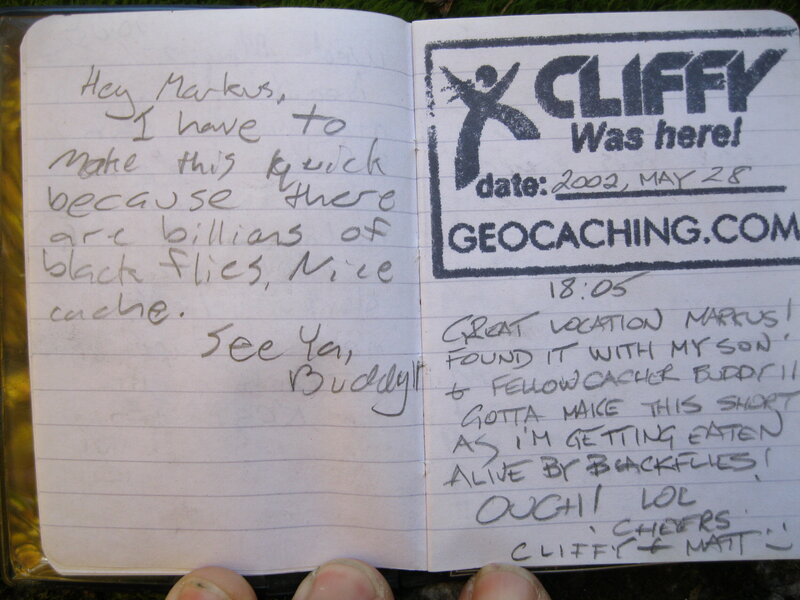 Hey Markus,
I have to
make this quick
because there
are billions of
black flies, Nice
cache.
See Ya,
Buddy11
CLIFFY
Was here!
date: 2002, MAY 28
GEOCACHING.COM
18:05
GREAT LOCATION MARKUS!
FOUND IT WITH MY SON
& FELLOW CACHER BUDDY11
GOTTA MAKE THIS SHORT
AS I'M GETTING EATEN
ALIVE BY BLACKFLIES!
OUCH! LOL
CHEERS
CLIFFY & MATT